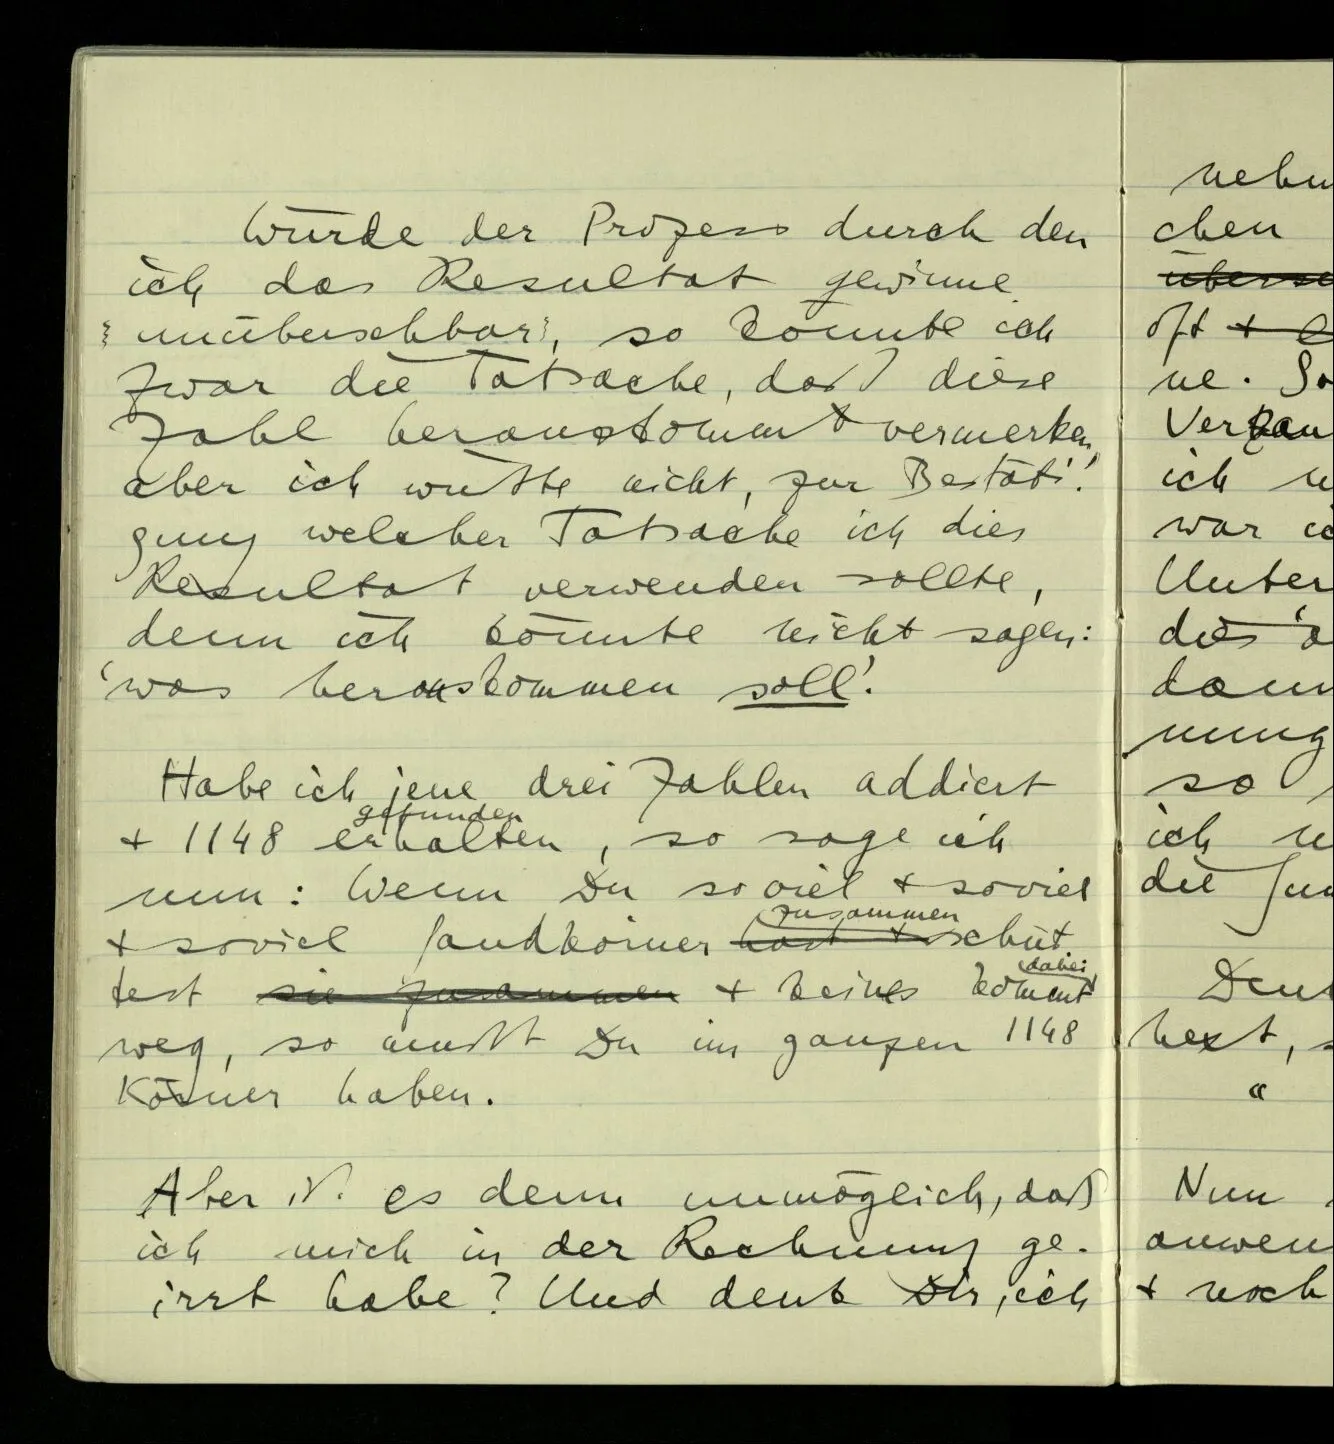 Würde der Prozess durch den
ich das Resultat gewinne
unübersehbar, so könnte ich
zwar die Tatsache, daß diese
Zahl herauskommt vermerken,
aber ich wüßte nicht, zur Bestäti-
gung welcher Tatsache ich dies
Resultat verwenden sollte,
denn ich könnte nicht sagen:
'was herauskommen soll'.
Habe ich jene drei Zahlen addiert
gefunden
+ 1148 erhalten, so sage ich
nun: Wenn Du soviel + soviel
zusammen
+ soviel Sandkörner hast + schüt
dabei
test sie zusammen + keines kommt
weg, so mußt Du im ganzen 1148
Körner haben.
Aber ist es denn unmöglich, daß
ich mich in der Rechnung ge-
irrt habe? Und denk Dir, ich
chen
oft +
ne. So
ich
war
Unter
die
dann
so
ich
die
Nun
+ noch